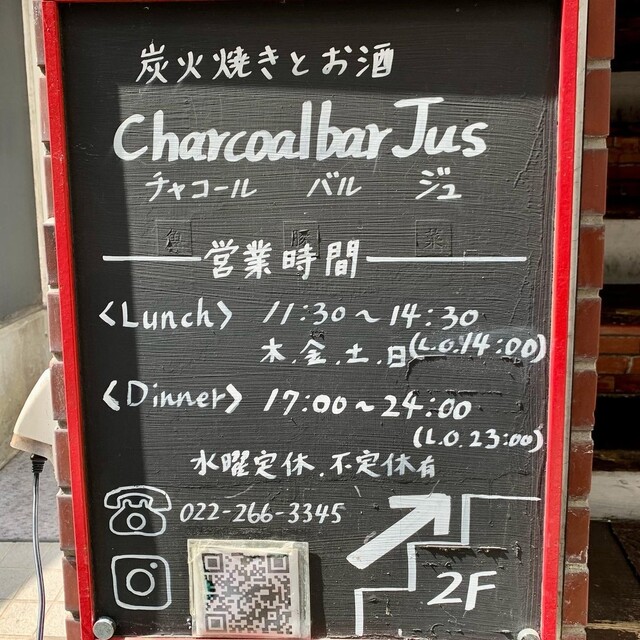 炭火焼きとお酒
Charcoalbar Jus
チャコール バル ジュ
魚 豚 菜
営業時間
〈Lunch〉 11:30～14:30
木.金.土.日(L.O.14:00)
〈Dinner〉 17:00～24:00
(L.O.23:00)
水曜定休.不定休有
022-266-3345
2F